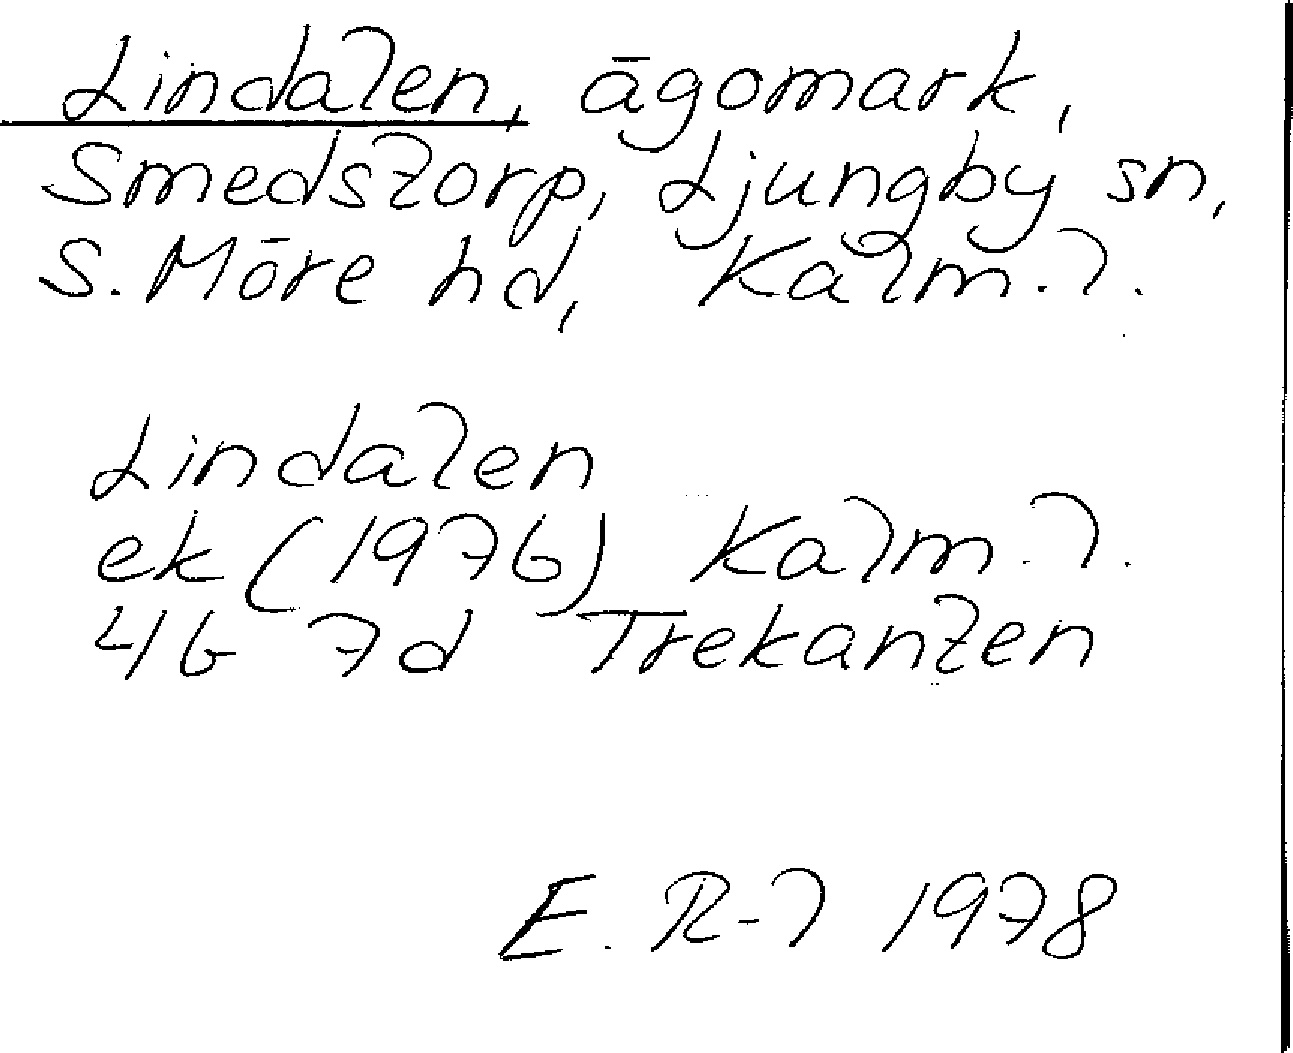 Lindalen, ägomark,
Smedstorp, Ljungby sn,
S. Möre hd, Kalm. l.
Lindalen
ek (1976) Kalm. l.
4G 7d Trekanten
E. R-l 1978